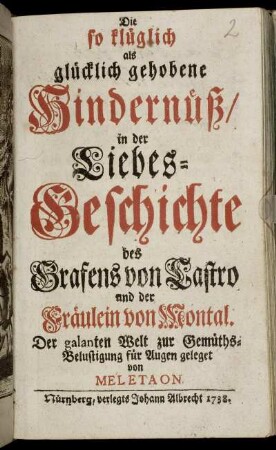 2
Die
so klüglich
als
glücklich gehobene
Hindernüß/
in der
Liebes-
Geschichte
des
Grafens von Castro
und der
Fräulein von Montal.
Der galanten Welt zur Gemüths-
Belustigung für Augen geleget
von
MELETAON.
Nürnberg, verlegts Johann Albrecht 1738.